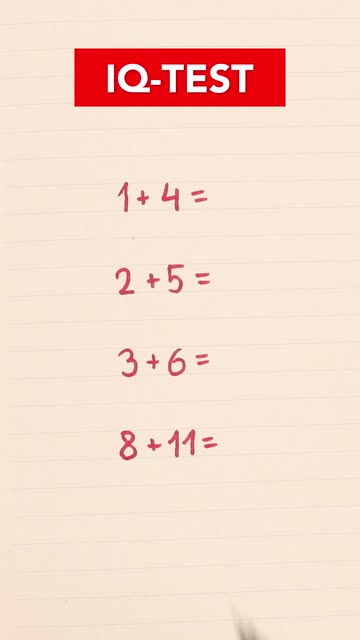 IQ-TEST
1 + 4 =
2 + 5 =
3 + 6 =
8 + 11 =